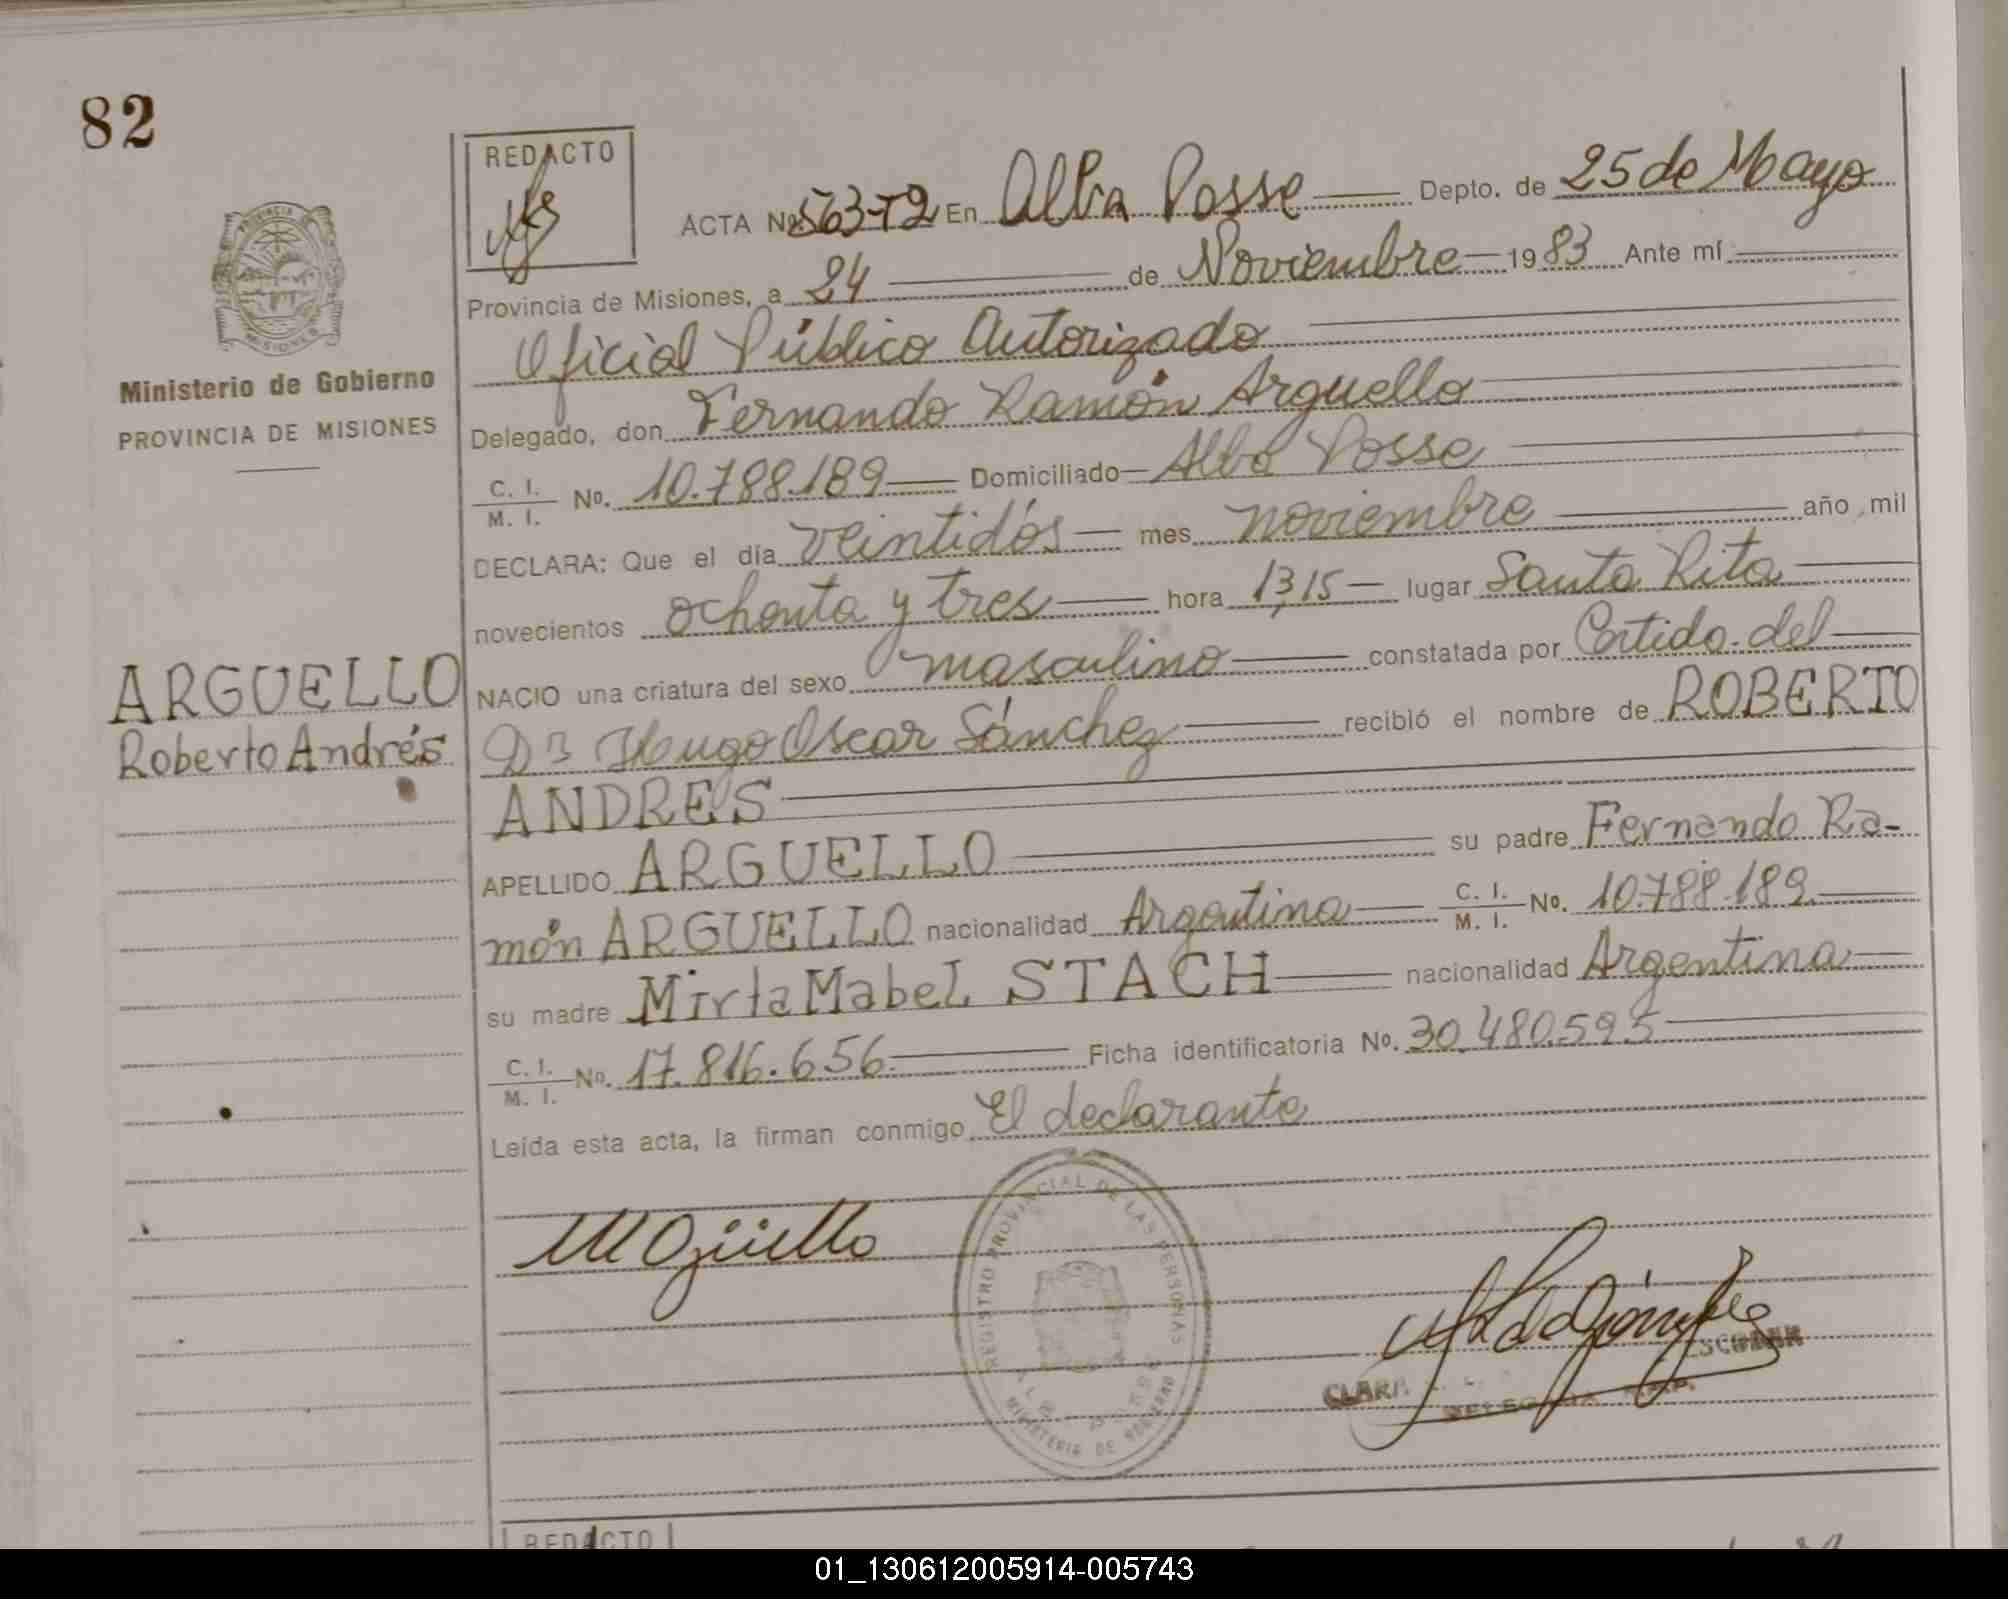 82
REDACTO
ACTA No 563-T2 En Alba Posse Depto. de 25 de Mayo
Provincia de Misiones, a 24 de Noviembre 1983 Ante mí
Oficial Público Autorizado
Delegado, don Fernando Ramón Arguello
C. I. M. I. No. 10.788.189 Domiciliado Alba Posse
DECLARA: Que el día veintidós mes noviembre año mil
novecientos ochenta y tres hora 13,15 lugar Santa Rita
NACIO una criatura del sexo masculino constatada por Certido. del
Dr Hugo Oscar Sánchez recibió el nombre de ROBERTO
ANDRES
APELLIDO ARGUELLO su padre Fernando Ra-
món ARGUELLO nacionalidad Argentina C. I. M. I. No. 10.788.189.
su madre Mirta Mabel STACH nacionalidad Argentina
C. I. M. I. No. 17.816.656 Ficha identificatoria No. 30.480.595
Leída esta acta, la firman conmigo El declarante
PROVINCIA DE MISIONES
Ministerio de Gobierno
PROVINCIA DE MISIONES
ARGUELLO
Roberto Andrés
REGISTRO PROVINCIAL DE LAS PERSONAS
MINISTERIO DE GOBIERNO
CLARA ESCOBAR
DELEGADA
REDACTO
01_130612005914-005743